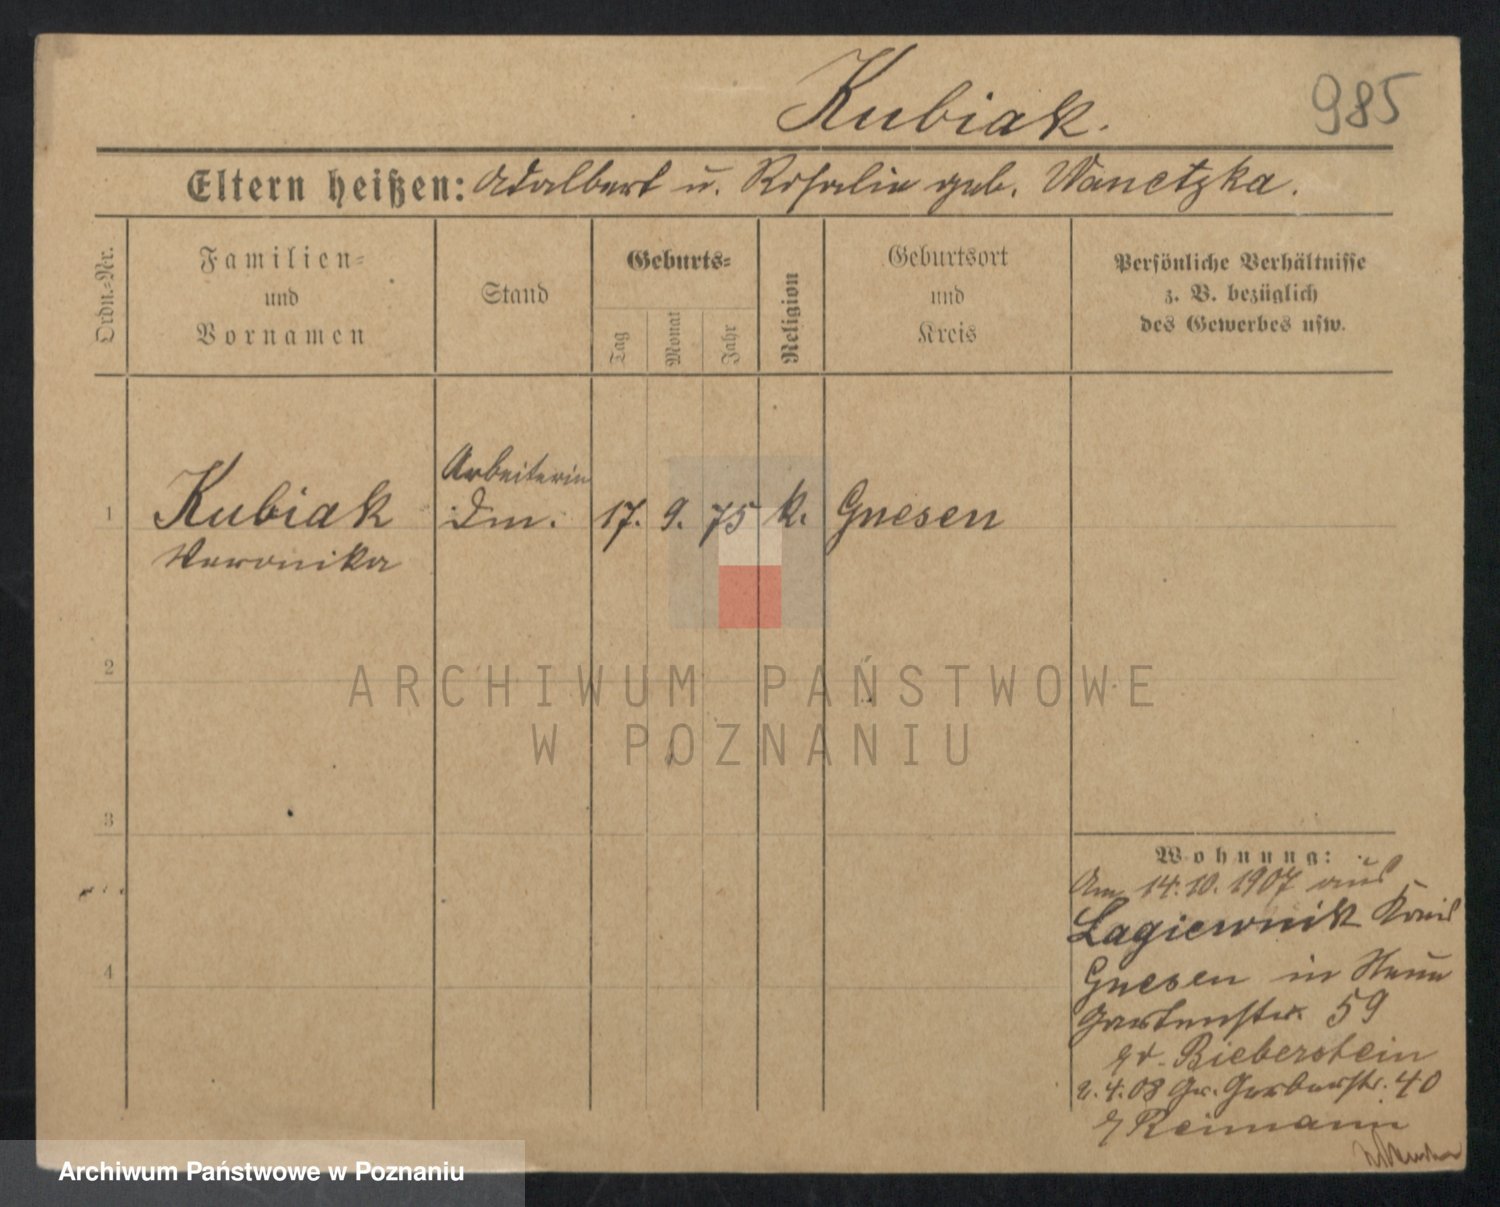 Kubiak.
985
Eltern heißen: Adalbert u. Rosalie geb. Wanetzka.
Ordn.-Nr.
Familien-
und
Vornamen
Stand
Geburts-
Tag
Monat
Jahr
Religion
Geburtsort
und
Kreis
Persönliche Verhältnisse
z. B. bezüglich
des Gewerbes usw.
Arbeiterin
1 Kubiak 17. 9. 75 k. Gnesen
Veronika
2
ARCHIWUM PAŃSTWOWE
W POZNANIU
3
Wohnung:
Am 14.10.1907 aus
Lagiewnik Kreis
4
Gnesen in Neue
Gartenstr. 59
Bieberstein
2.4.08 Gr. Gerberstr. 40
Reimann
Archiwum Państwowe w Poznaniu